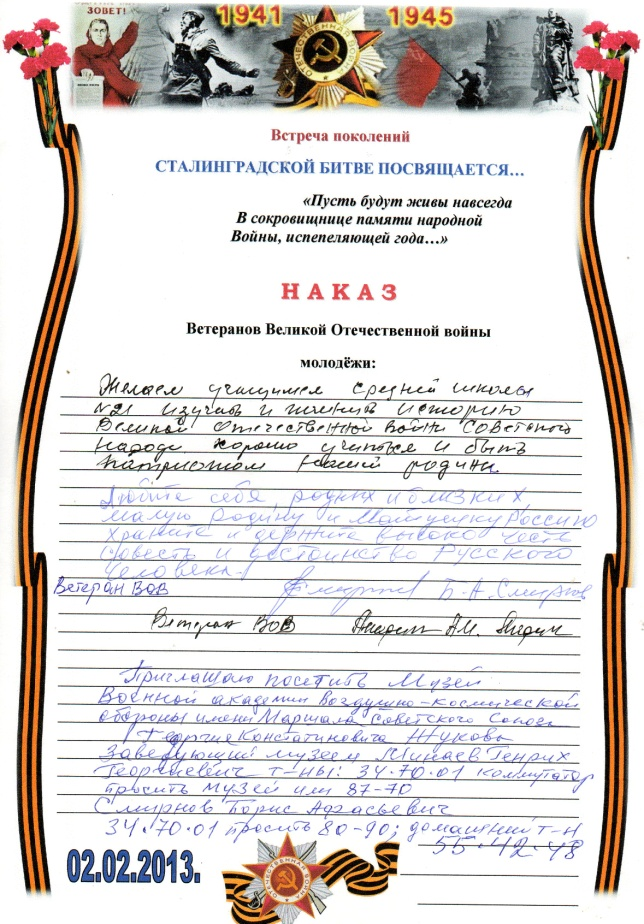 ЗОВЕТ!
1941 1945
ОТЕЧЕСТВЕННАЯ ВОЙНА
Встреча поколений
СТАЛИНГРАДСКОЙ БИТВЕ ПОСВЯЩАЕТСЯ…
«Пусть будут живы навсегда
В сокровищнице памяти народной
Войны, испепеляющей года…»
НАКАЗ
Ветеранов Великой Отечественной войны
молодёжи:
Желаем учащимся средней школы
№21 изучать и помнить историю
Великой Отечественной войн Советского
народа, хорошо учиться и быть
патриотом нашей родины.
Любите себя, родных и близких,
малую Родину и Матушку Россию
храните и держите высоко честь
совесть и достоинство Русского
человека!
Ветеран ВОВ Б.А. Смирнов
Ветеран ВОВ А.М.
Приглашаю посетить Музей
Военной академии Воздушно-космической
обороны имени Маршала Советского Союза
Георгия Констатиновича Жукова
Заведующий музеем Минаев Генрих
Георгиевич т-ны: 34.70.01 коммутатор
просить музей или 87-70
Смирнов Борис
34.70.01 просить 80-90; домашний т-н
55-42-48
02.02.2013.
ОТЕЧЕСТВЕННАЯ ВОЙНА